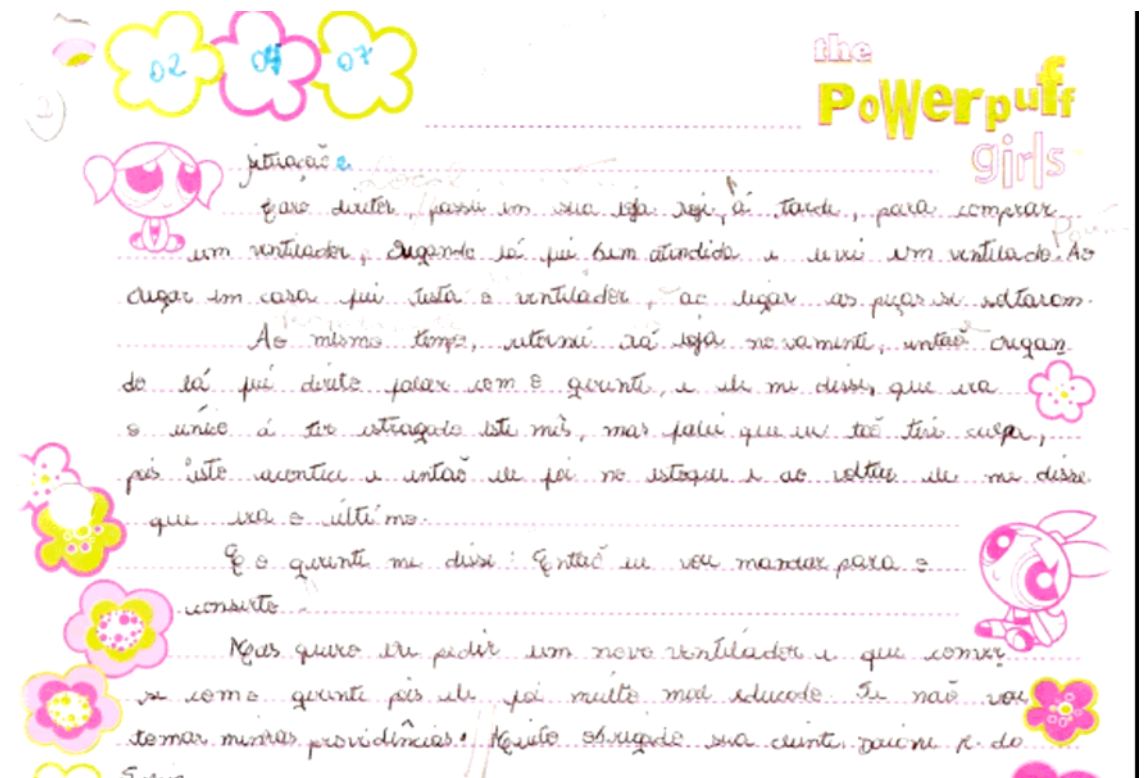 02 04 07
the
Powerpuff
girls
2
situação 2
Caro diretor, passei em sua loja hoje, á tarde, para comprar
um ventilador, chegando lá fui bem atendida e levei um ventilado. Ao
chegar em casa fui testa o ventilador, ao ligar as peças se soltaram.
Ao mesmo tempo, retornei há loja novamente, então chegan
do lá fui direto falar com o gerente, e ele me disse, que era
o único á ter estragado este mês, mas falei que eu
pois isto acontece e então ele foi no estoque e ao voltar ele me disse
que era o último.
E o gerente me disse: Então eu vou mandar para o
conserto.
Mas quero lhe pedir um novo ventilador e que conver
se com o gerente pois ele foi muito mal educado. Se não vou
tomar minhas providências. Muito obrigado sua cliente, do